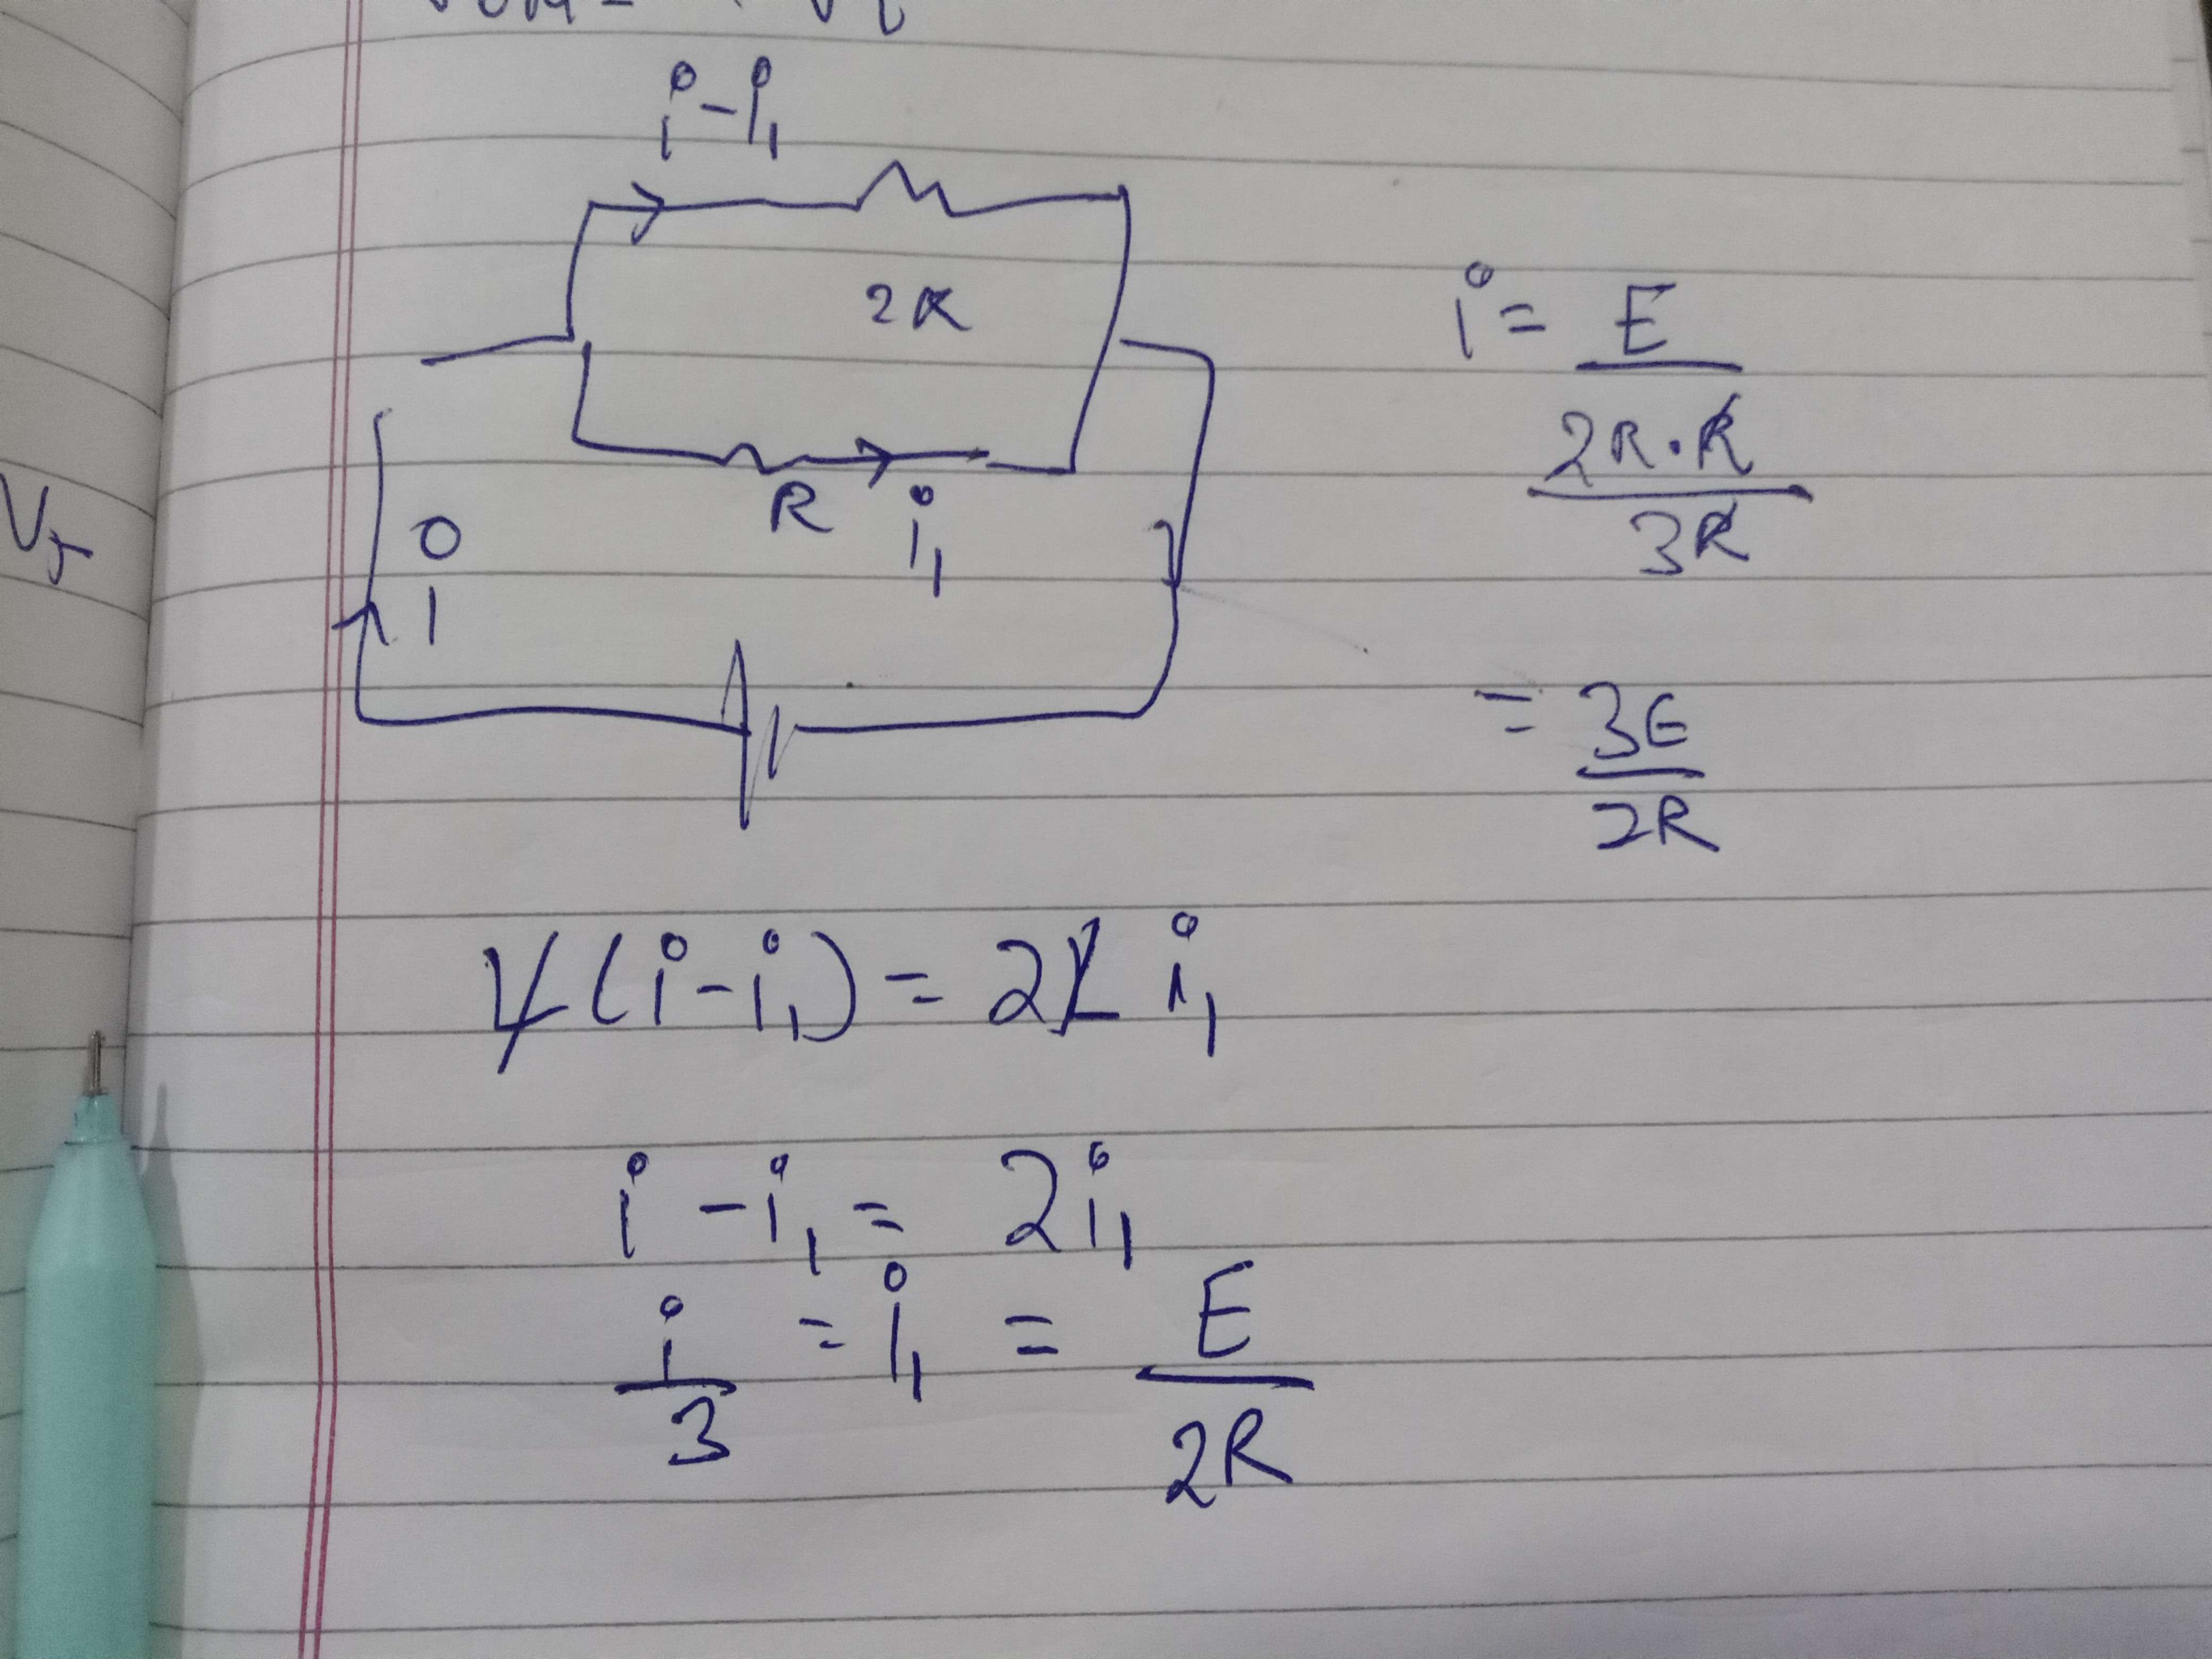 i - i₁
2R
R i₁
i
i = E / (2R·R / 3R)
= 3E / 2R
V_r
L(i - i₁) = 2L i₁
i - i₁ = 2i₁
i/3 = i₁ = E / 2R